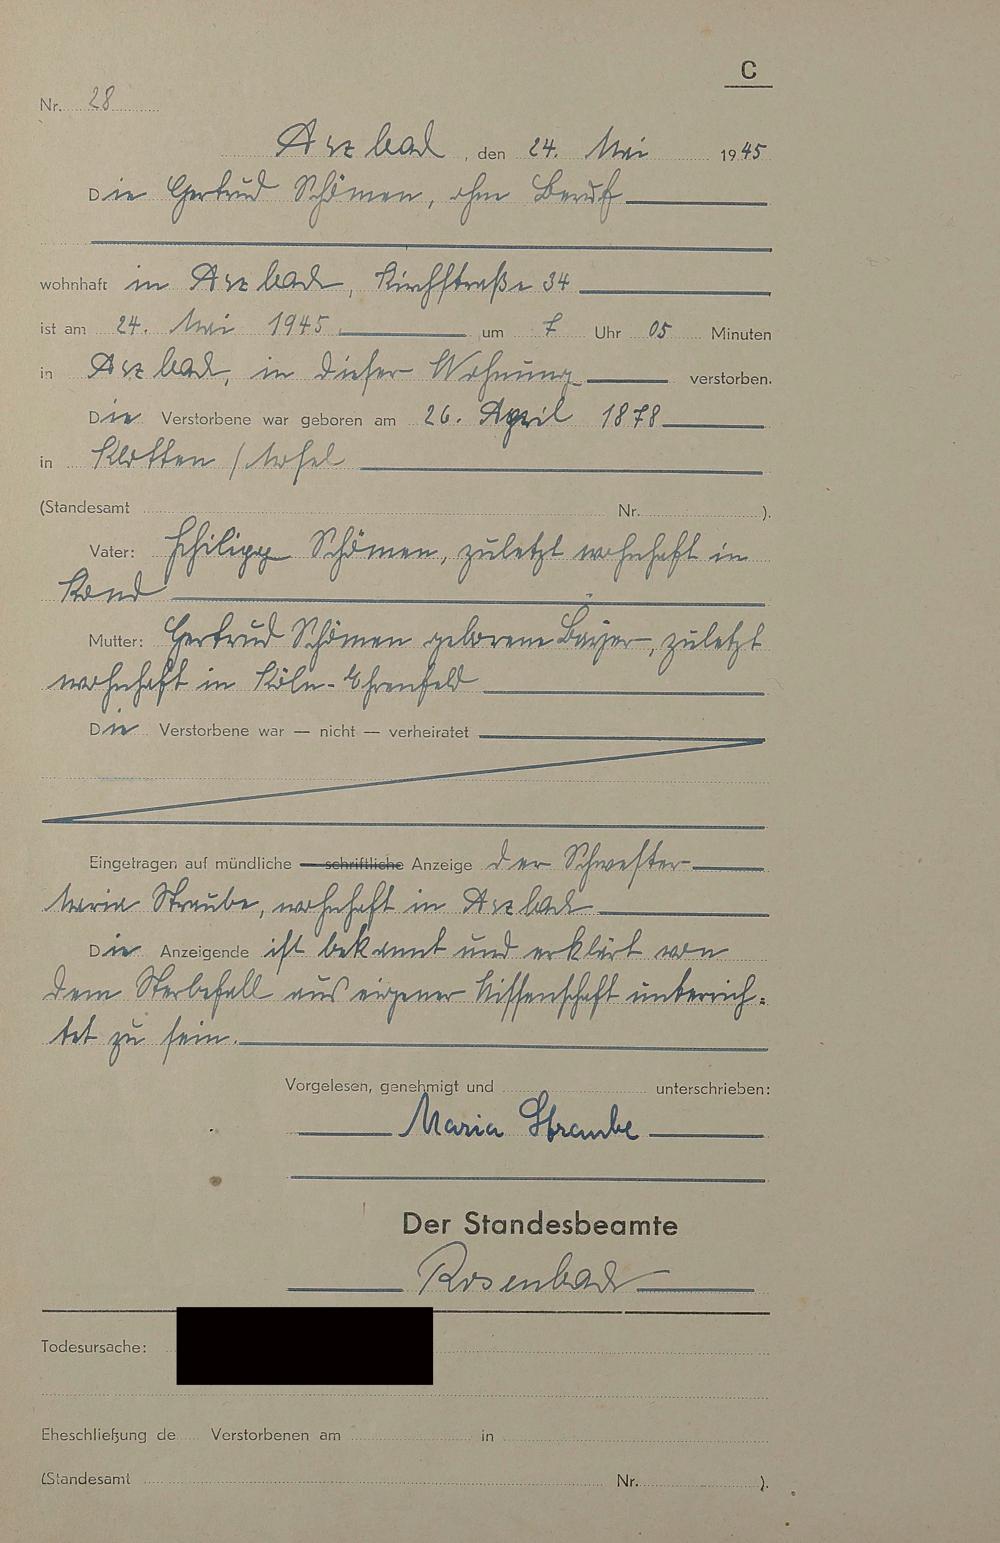 C
Nr. 28
Arzbach, den 24. Mai 1945
Die Gertrud Schömen, ohne Beruf
wohnhaft in Arzbach, Kirchstraße 34
ist am 24. Mai 1945 um 7 Uhr 05 Minuten
in Arzbach, in dieser Wohnung verstorben.
Die Verstorbene war geboren am 26. April 1878
in Klotten / Mosel
(Standesamt Nr. ).
Vater: Philipp Schömen, zuletzt wohnhaft in
Kond
Mutter: Gertrud Schömen geborene, zuletzt
wohnhaft in Köln-Ehrenfeld
Die Verstorbene war — nicht — verheiratet
Eingetragen auf mündliche — schriftliche Anzeige der Schwester
Maria Straube, wohnhaft in Arzbach
Die Anzeigende ist bekannt und erklärt von
dem Sterbefall aus eigener Wissenschaft unterrich=
tet zu sein.
Vorgelesen, genehmigt und unterschrieben:
Maria Straube
Der Standesbeamte
Rosenbach
Todesursache:
Eheschließung de Verstorbenen am in
(Standesamt Nr. ).